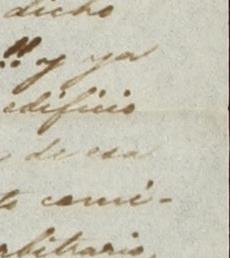 dicho
!! y ya
edificio
de esa
comi-
arbitrario,